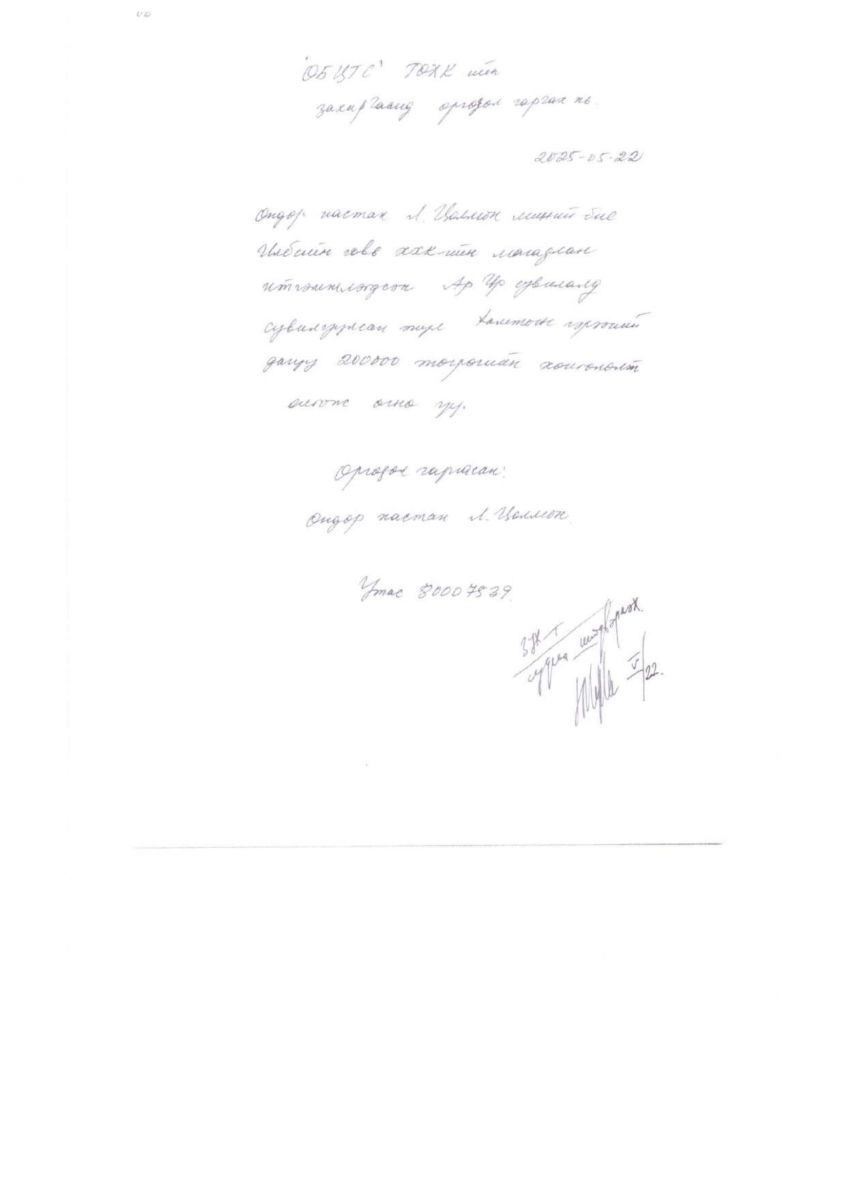 "ОБЦТС" ТӨХК ийн
захиргаанд өргөдөл гаргах нь.
2025-05-22
Өндөр настан Л. Цолмон миний бие
говь ХХК-ийн магадлан
итгэмжлэгдсэн Ар Үр сувилалд
сувилуулсан тул Хамтын гэрээний
дагуу 200000 төгрөгийн хөнгөлөлт
олгож өгнө үү.
Өргөдөл гаргасан:
Өндөр настан Л. Цолмон.
Утас 80007939.
ЗХ-Т
судлан шийдвэрлэх.
V/22.